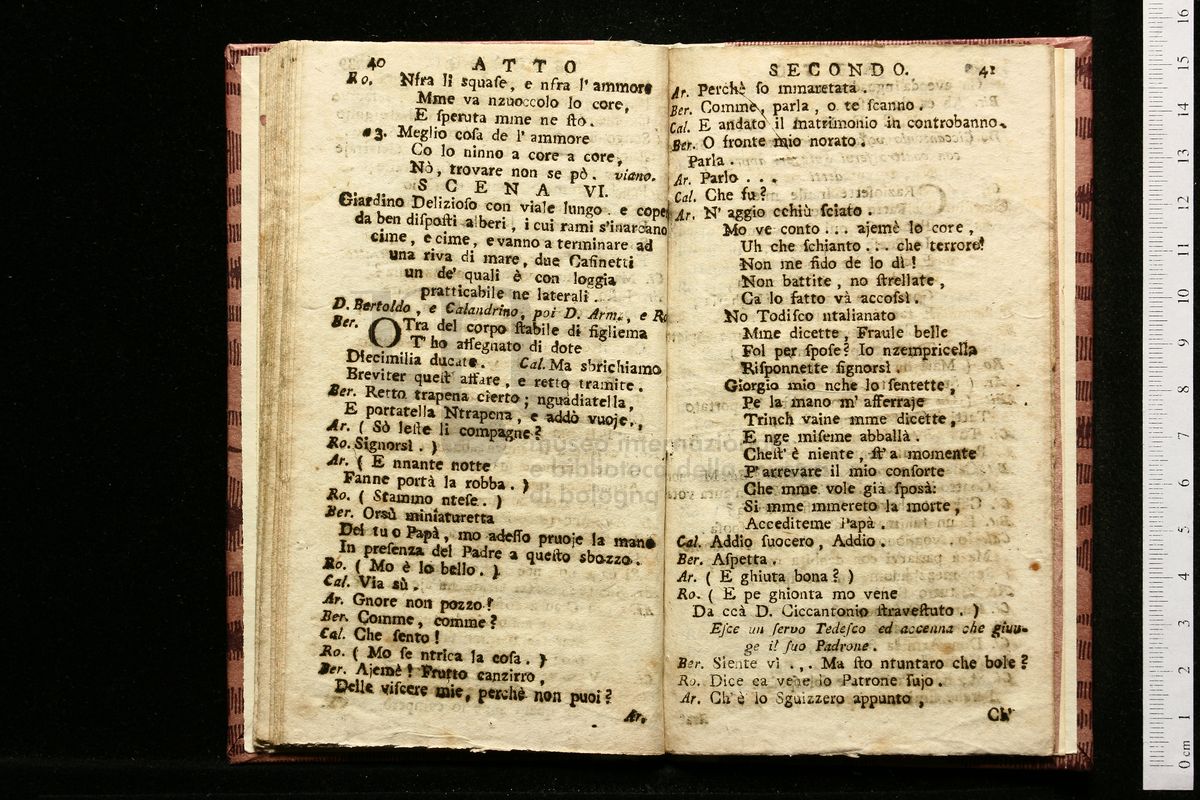 40 ATTO
Ro. Nfra li squase, e nfra l' ammore
Mme va nzuoccolo lo core,
E speruta mme ne sto.
a3. Meglio cosa de l' ammore
Co lo ninno a core a core,
Nò, trovare non se pò. viano.
SCENA VI.
Giardino Delizioso con viale lungo. e cope
da ben disposti alberi, i cui rami s'inarcano
cime, e cime, e vanno a terminare ad
una riva di mare, due Casinetti
un de' quali è con loggia
pratticabile ne laterali.
D. Bertoldo, e Calandrino, poi D. Arm., e Ro
Ber. OTra del corpo stabile di figliema
T' ho assegnato di dote
Diecimilia ducate. Cal. Ma sbrichiamo
Breviter quest' affare, e retto tramite.
Ber. Retto trapena cierto; nguadiatella,
E portatella Ntrapena, e addò vuoje.,
Ar. ( Sò leste li compagne?
Ro. Signorsì. )
Ar. ( E nnante notte
Fanne portà la robba. )
Ro. ( Stammo ntese. )
Ber. Orsù miniaturetta
Del tuo Papà, mo adesso pruoje la mano
In presenza del Padre a questo sbozzo.
Ro. ( Mo è lo bello. )
Cal. Via sù.
Ar. Gnore non pozzo!
Ber. Comme, comme?
Cal. Che sento!
Ro. ( Mo se ntrica la cosa. )
Ber. Ajemè! Frutto canzirro,
Delle viscere mie, perchè non puoi?
Ar.
SECONDO. 41
Ar. Perchè so mmaretata.
Ber. Comme, parla, o te scanno.
Cal. E andato il matrimonio in controbanno.
Ber. O fronte mio norato.
Parla.
Ar. Parlo . . .
Cal. Che fu?
Ar. N' aggio cchiù sciato.
Mo ve conto . . . ajemè lo core,
Uh che schianto . . . che terrore!
Non me fido de lo dì!
Non battite, no strellate,
Ca lo fatto và accossì.
No Todisco ntalianato
Mme dicette, Fraule belle
Fol per spose? Io nzempricella
Risponnette signorsì.
Giorgio mio nche lo sentette,
Pe la mano m' afferraje
Trinch vaine mme dicette,
E nge miseme abballà.
Chest' è niente, st' a momente
P' arrevare il mio consorte
Che mme vole già sposà:
Si mme mmereto la morte,
Accediteme Papà.
Cal. Addio suocero, Addio.
Ber. Aspetta.
Ar. ( E ghiuta bona? )
Ro. ( E pe ghionta mo vene
Da ccà D. Ciccantonio stravestuto. )
Esce un servo Tedesco ed accenna che giun-
ge il suo Padrone.
Ber. Siente vì . . . Ma sto ntuntaro che bole?
Ro. Dice ca vene lo Patrone sujo.
Ar. Ch' è lo Sguizzero appunto,
Ch'
museo internazio
e biblioteca della
di bologna
0 cm 1 2 3 4 5 6 7 8 9 10 11 12 13 14 15 16